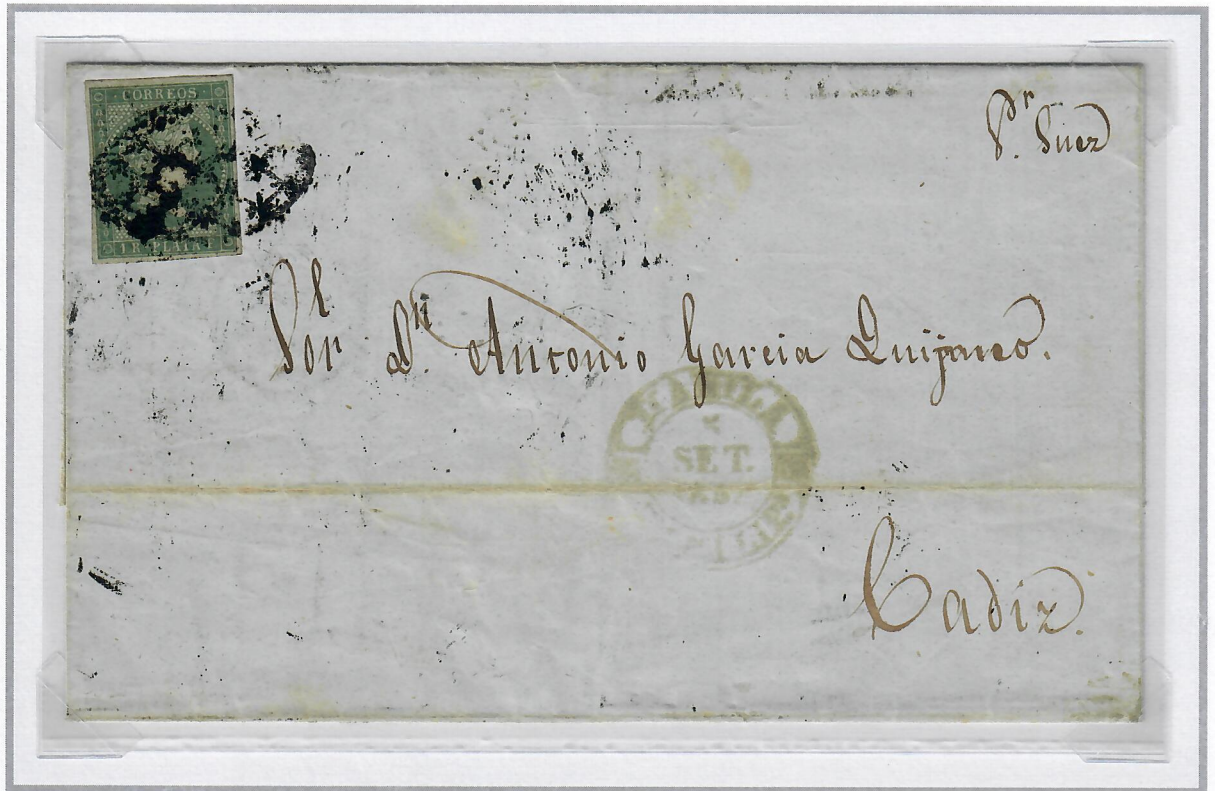 CORREOS
1 R. PLATA F
Pr. Suez
Sor Dn Antonio Garcia Quijano.
MANILA
SET.
Cadiz.